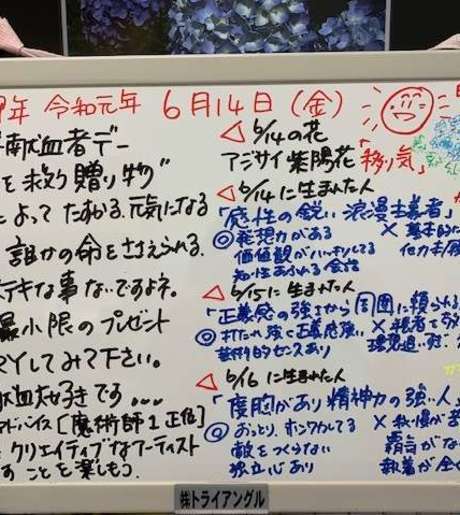 年 令和元年 6月14日(金)
献血者デー
を救う贈り物"
によって たすかる.元気になる
誰かの命をささえられる.
ステキな事ないですよネ。
最小限のプレゼント
してみて下さい。
血大好きです...
アドバイス[魔術師1正位]
クリエイティブなアーティスト
すことを楽しもう.
◁ 6/14の花
アジサイ 紫陽花「移り気」
◁ 6/14に生まれた人
「感性の鋭い浪漫主義者」
◎ 発想力がある
価値観がハッキリしてる
知性あふれる会話
×
◁ 6/15に生まれた人
「正義感の強さから周囲に頼られる
◎ 打たれ強く正義感強い
芸術的センスあり
×
◁ 6/16に生まれた人
「度胸があり精神力の強い人」
◎ おっとり、ホンワカしてる
敵をつくらない
独立心あり
×
覇気がな
執着が全く
㈱トライアングル